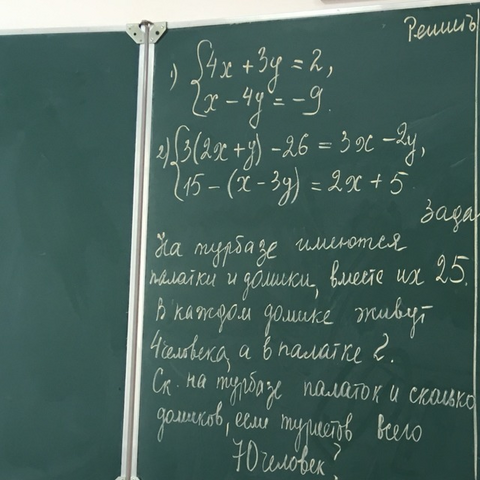 Решить
1) {4x + 3y = 2,
{x - 4y = -9.
2) {3(2x + y) - 26 = 3x - 2y,
{15 - (x - 3y) = 2x + 5
Зада
На турбазе имеются
палатки и домики, вместе их 25.
В каждом домике живут
4 человека, а в палатке 2.
Ск. на турбазе палаток и сколько
домиков, если туристов всего
70 человек?